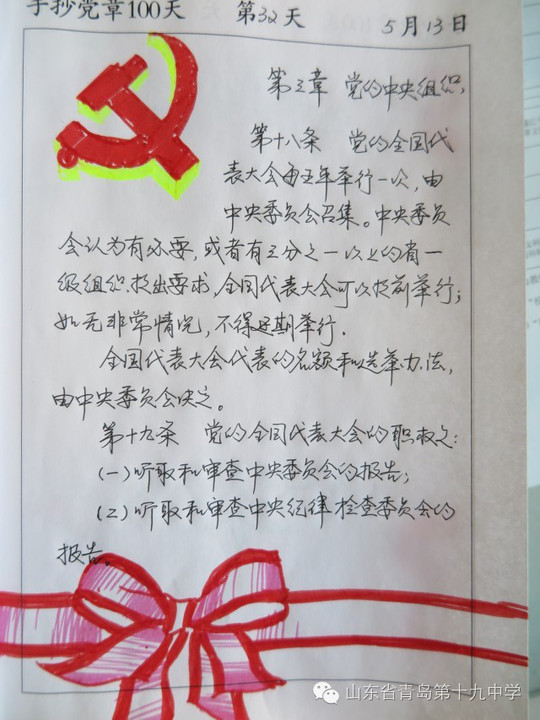 手抄党章100天 第32天 5月13日
第三章 党的中央组织
第十八条 党的全国代
表大会每五年举行一次,由
中央委员会召集。中央委员
会认为有必要,或者有三分之一以上的省一
级组织提出要求,全国代表大会可以提前举行;
如无非常情况,不得延期举行.
全国代表大会代表的名额和选举办法,
由中央委员会决定。
第十九条 党的全国代表大会的职权是:
(一)听取和审查中央委员会的报告;
(2)听取和审查中央纪律检查委员会的
报告。
山东省青岛第十九中学